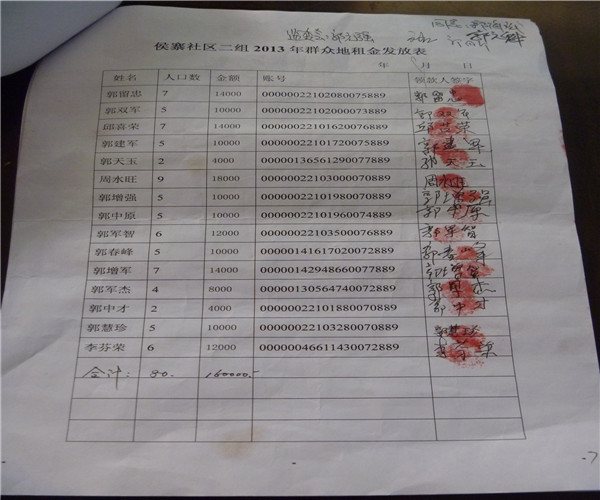 监委会：郭文强
侯寨社区二组2013年群众地租金发放表
年 月 日
姓名 人口数 金额 账号 领款人签字
郭留忠 7 14000 00000022102080075889 郭留忠
郭双军 5 10000 00000022102000073889 郭双军
邱喜荣 7 14000 00000022101620076889 邱喜荣
郭建军 5 10000 00000022101720075889 郭建军
郭天玉 2 4000 00000136561290077889 郭天玉
周水旺 9 18000 00000022103000070889 周水旺
郭增强 5 10000 00000022101980070889 郭增强
郭中原 5 10000 00000022101960074889 郭中原
郭军智 6 12000 00000022103500076889 郭军智
郭春峰 5 10000 00000141617020072889 郭春峰
郭增军 7 14000 00000142948660077889 郭增军
郭军杰 4 8000 00000130564740072889 郭军杰
郭中才 2 4000 00000022101880070889 郭中才
郭慧珍 5 10000 00000022103280070889 郭慧珍
李芬荣 6 12000 00000046611430072889 李芬荣
合计： 80. 160000.-